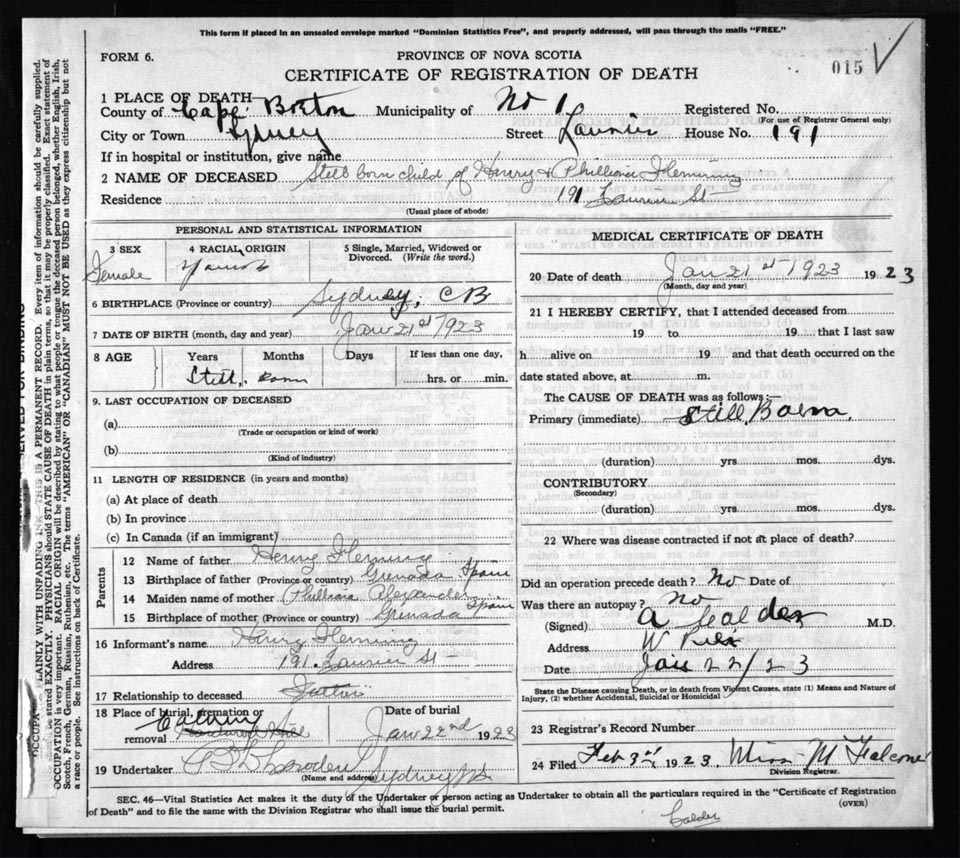 This form if placed in an unsealed envelope marked "Dominion Statistics Free", and properly addressed, will pass through the mails "FREE."
FORM 6.
PROVINCE OF NOVA SCOTIA
CERTIFICATE OF REGISTRATION OF DEATH
015
1 PLACE OF DEATH
County of Cape Breton Municipality of No 1 Registered No.
(For use of Registrar General only)
City or Town Sydney Street Laurier House No. 191
If in hospital or institution, give name
2 NAME OF DECEASED Still born child of Henry & Philliora Fleming
Residence 191 Laurier St
(Usual place of abode)
PERSONAL AND STATISTICAL INFORMATION
3 SEX 4 RACIAL ORIGIN 5 Single, Married, Widowed or Divorced. (Write the word.)
Female
6 BIRTHPLACE (Province or country) Sydney, CB
7 DATE OF BIRTH (month, day and year) Jan 21st 1923
8 AGE Years Months Days If less than one day,
Still born hrs. or min.
9. LAST OCCUPATION OF DECEASED
(a)
(Trade or occupation or kind of work)
(b)
(Kind of industry)
11 LENGTH OF RESIDENCE (in years and months)
(a) At place of death
(b) In province
(c) In Canada (if an immigrant)
Parents
12 Name of father Henry Fleming
13 Birthplace of father (Province or country) Grenada Spain
14 Maiden name of mother Philliora Alexander
15 Birthplace of mother (Province or country) Grenada Spain
16 Informant's name Henry Fleming
Address 191 Laurier St
17 Relationship to deceased Father
18 Place of burial, cremation or removal
Date of burial
Jan 22nd 1923
19 Undertaker Sydney NS
(Name and address)
MEDICAL CERTIFICATE OF DEATH
20 Date of death Jan 21st 1923 1923
(Month, day and year)
21 I HEREBY CERTIFY, that I attended deceased from
19 to 19 that I last saw
h alive on 19 and that death occurred on the
date stated above, at m.
The CAUSE OF DEATH was as follows:—
Primary (immediate) Still Born
(duration) yrs. mos. dys.
CONTRIBUTORY
(Secondary)
(duration) yrs. mos. dys.
22 Where was disease contracted if not at place of death?
Did an operation precede death? No Date of
Was there an autopsy? no
(Signed) A Calder M.D.
Address W Pier
Date Jan 22/23
State the Disease causing Death, or in death from Violent Causes, state (1) Means and Nature of
Injury, (2) whether Accidental, Suicidal or Homicidal
23 Registrar's Record Number
24 Filed Feb 3rd 1923, Miss M Falconer
Division Registrar.
SEC. 46—Vital Statistics Act makes it the duty of the Undertaker or person acting as Undertaker to obtain all the particulars required in the "Certificate of Registration
of Death" and to file the same with the Division Registrar who shall issue the burial permit.
(OVER)
Calder
LAINLY WITH UNFADING INK—THIS IS A PERMANENT RECORD. Every item of information should be carefully supplied.
be stated EXACTLY. PHYSICIANS should STATE CAUSE OF DEATH in plain terms, so that it may be properly classified. Exact statement of
OCCUPATION is very important. RACIAL ORIGIN will be described by stating to what people or tongue the deceased person belonged, whether English, Irish,
Scotch, French, German, Russian, Ruthenian, etc. The terms "AMERICAN" OR "CANADIAN" MUST NOT BE USED as they express citizenship but not
a race or people. See instructions on back of Certificate.